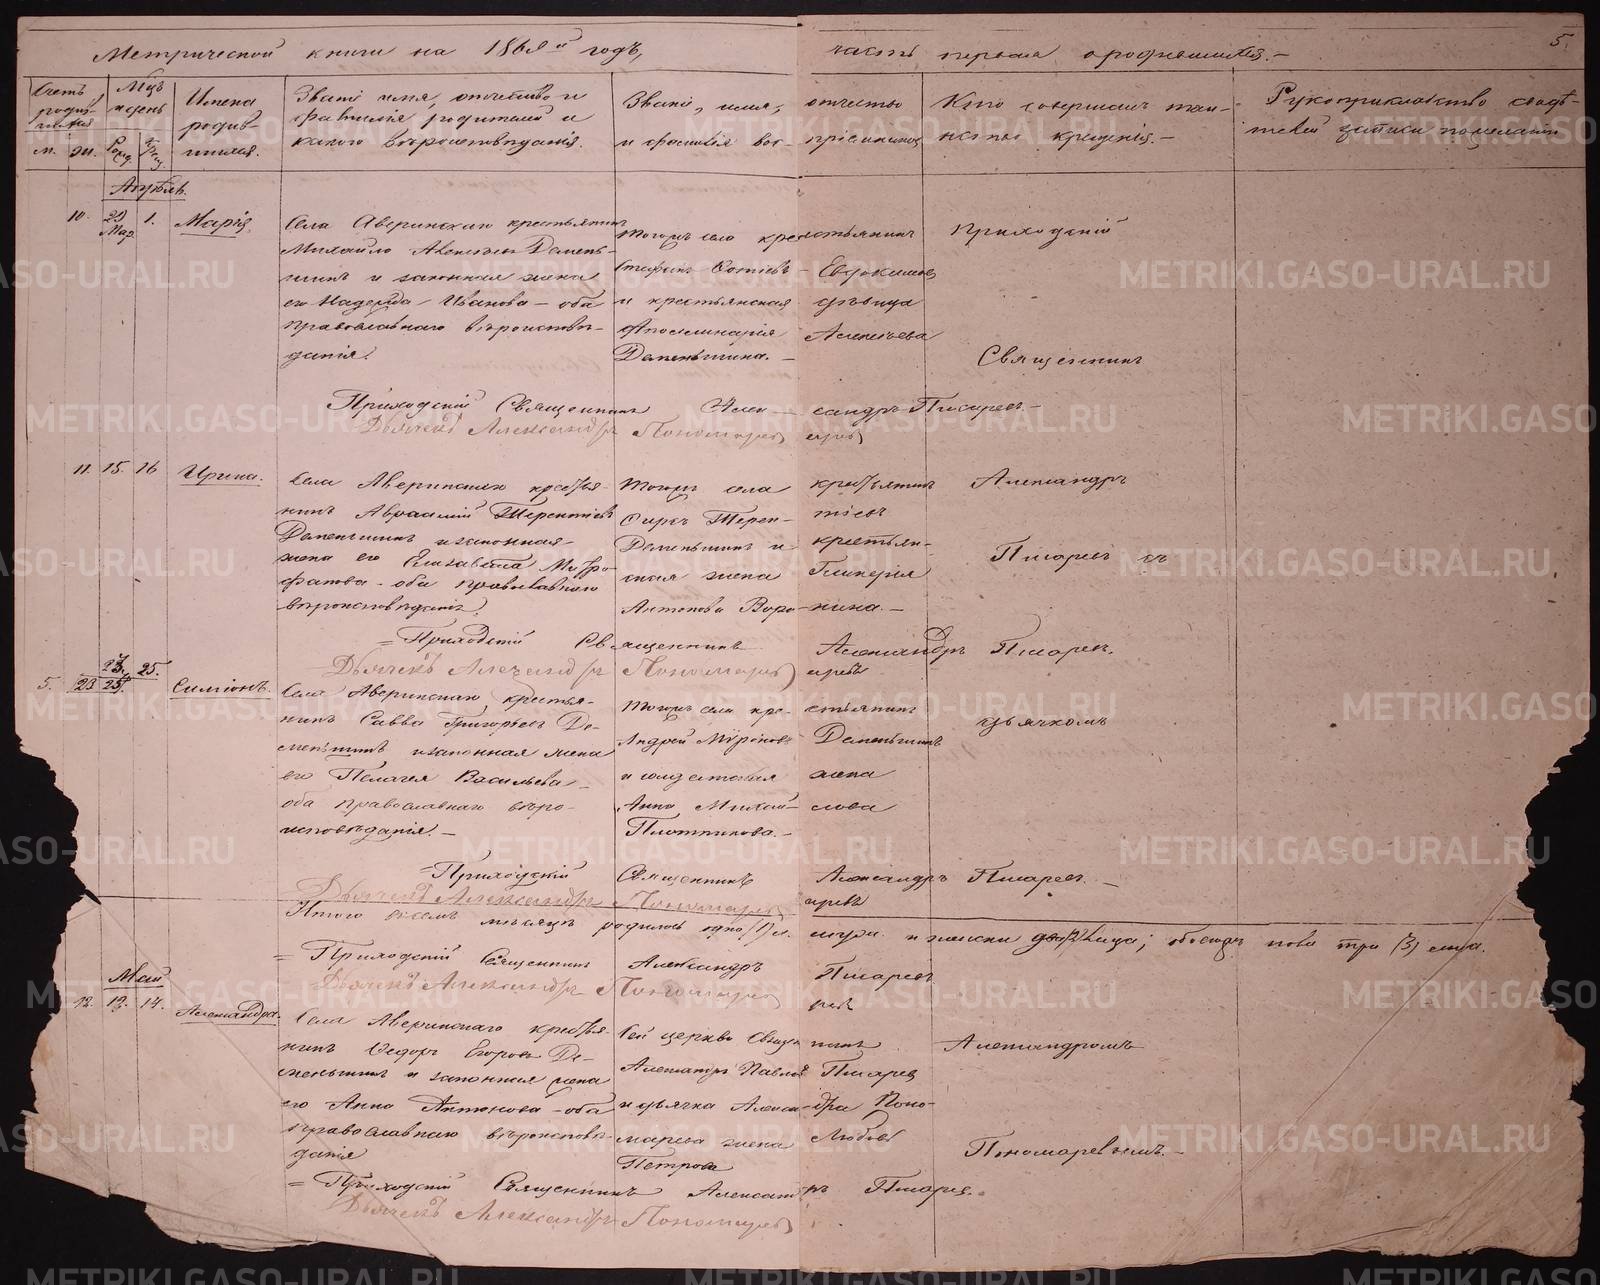 Метрической книги на 186 й годъ, часть первая о родившихся. —
5.
Счетъ родив- шихся
м. ж.
Мцъ и день
Рожд. Крещ.
Имена родив- шихся.
Званіе имя, отчество и
фамилія родителей и
какого вѣроисповѣданія.
Званіе, имя, отчество
и фамилія вос- пріемниковъ
Кто совершалъ таин-
ство крещенія. —
Рукоприкладство свидѣ-
телей записи по желанію
Апрѣль.
10. 29 Мар. 1. Марія
Села Аверинскаго крестьянинъ
Михайло
и законная жена
его Надежда Иванова — оба
православнаго вѣроисповѣ-
данія.
Тогожъ села крестьянинъ
Евдокимовъ
и крестьянская дѣвица
Аполлинарія Алексѣева
Деменьшина. —
Приходскій
Священникъ
Приходскій Священникъ Александръ Писаревъ. —
Дьячекъ Александръ Пономаревъ
11. 15. 16 Ирина.
Села Аверинскаго крестья-
нинъ Авраамій Терентіевъ
Деменьшинъ и законная
жена его Елизавета Митро-
фанова — оба православнаго
вѣроисповѣданія.
Тогожъ села крестьянинъ
Терен- тіевъ
Деменьшинъ и крестьян-
ская жена Гликерія
Антонова Воро- нина. —
Александръ
Писаревъ съ
= Приходскій Священникъ Александръ Писаревъ.
Дьячекъ Александръ Пономаревъ
5. 23 25. 25. Симеонъ.
Села Аверинскаго крестья-
нинъ Савва Григорьевъ Де-
меньшинъ и законная жена
его Пелагея Васильева
оба православнаго вѣро-
исповѣданія. —
Тогожъ села кре- стьянинъ
Андрей Мироновъ Деменьшинъ
и жена
Анна Михай- лова
Плотникова. —
дьячкомъ
= Приходскій Священникъ Александръ Писаревъ. —
Дьячекъ Александръ Пономаревъ
Итого въ семъ мѣсяцѣ родилось одно (1) м. и женски два (2) лица; обоего пола три (3) лица.
= Приходскій Священникъ Александръ Писаревъ
Дьячекъ Александръ Пономаревъ
Май
12. 12. 14. Александра.
Села Аверинскаго крестья-
нинъ Ѳедоръ Егоровъ Де-
меньшинъ и законная жена
его Анна Антонова — оба
православнаго вѣроисповѣ-
данія
Сей церкви Священ- никъ
Александръ Павловъ Писаревъ
и дьячка Алексан- дра Поно-
марева жена Любовь
Петрова
Александромъ
Пономаревымъ. —
= Приходскій Священникъ Александръ Писаревъ.
Дьячекъ Александръ Пономаревъ
METRIKI.GASO-URAL.RU